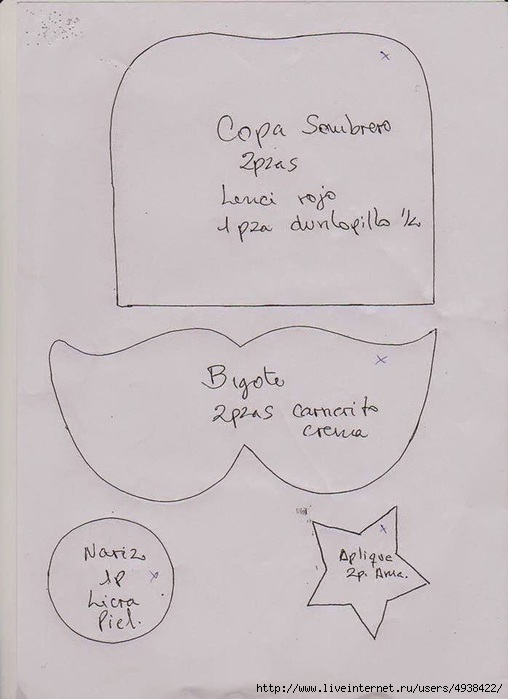 Copa Sombrero
2pzas
Lenci rojo
1 pza dunlopillo 1/2
Bigote
2pzas carnerito
crema
Nariz
1p
Licra
Piel.
Aplique
2p. Ama.
http://www.liveinternet.ru/users/4938422/